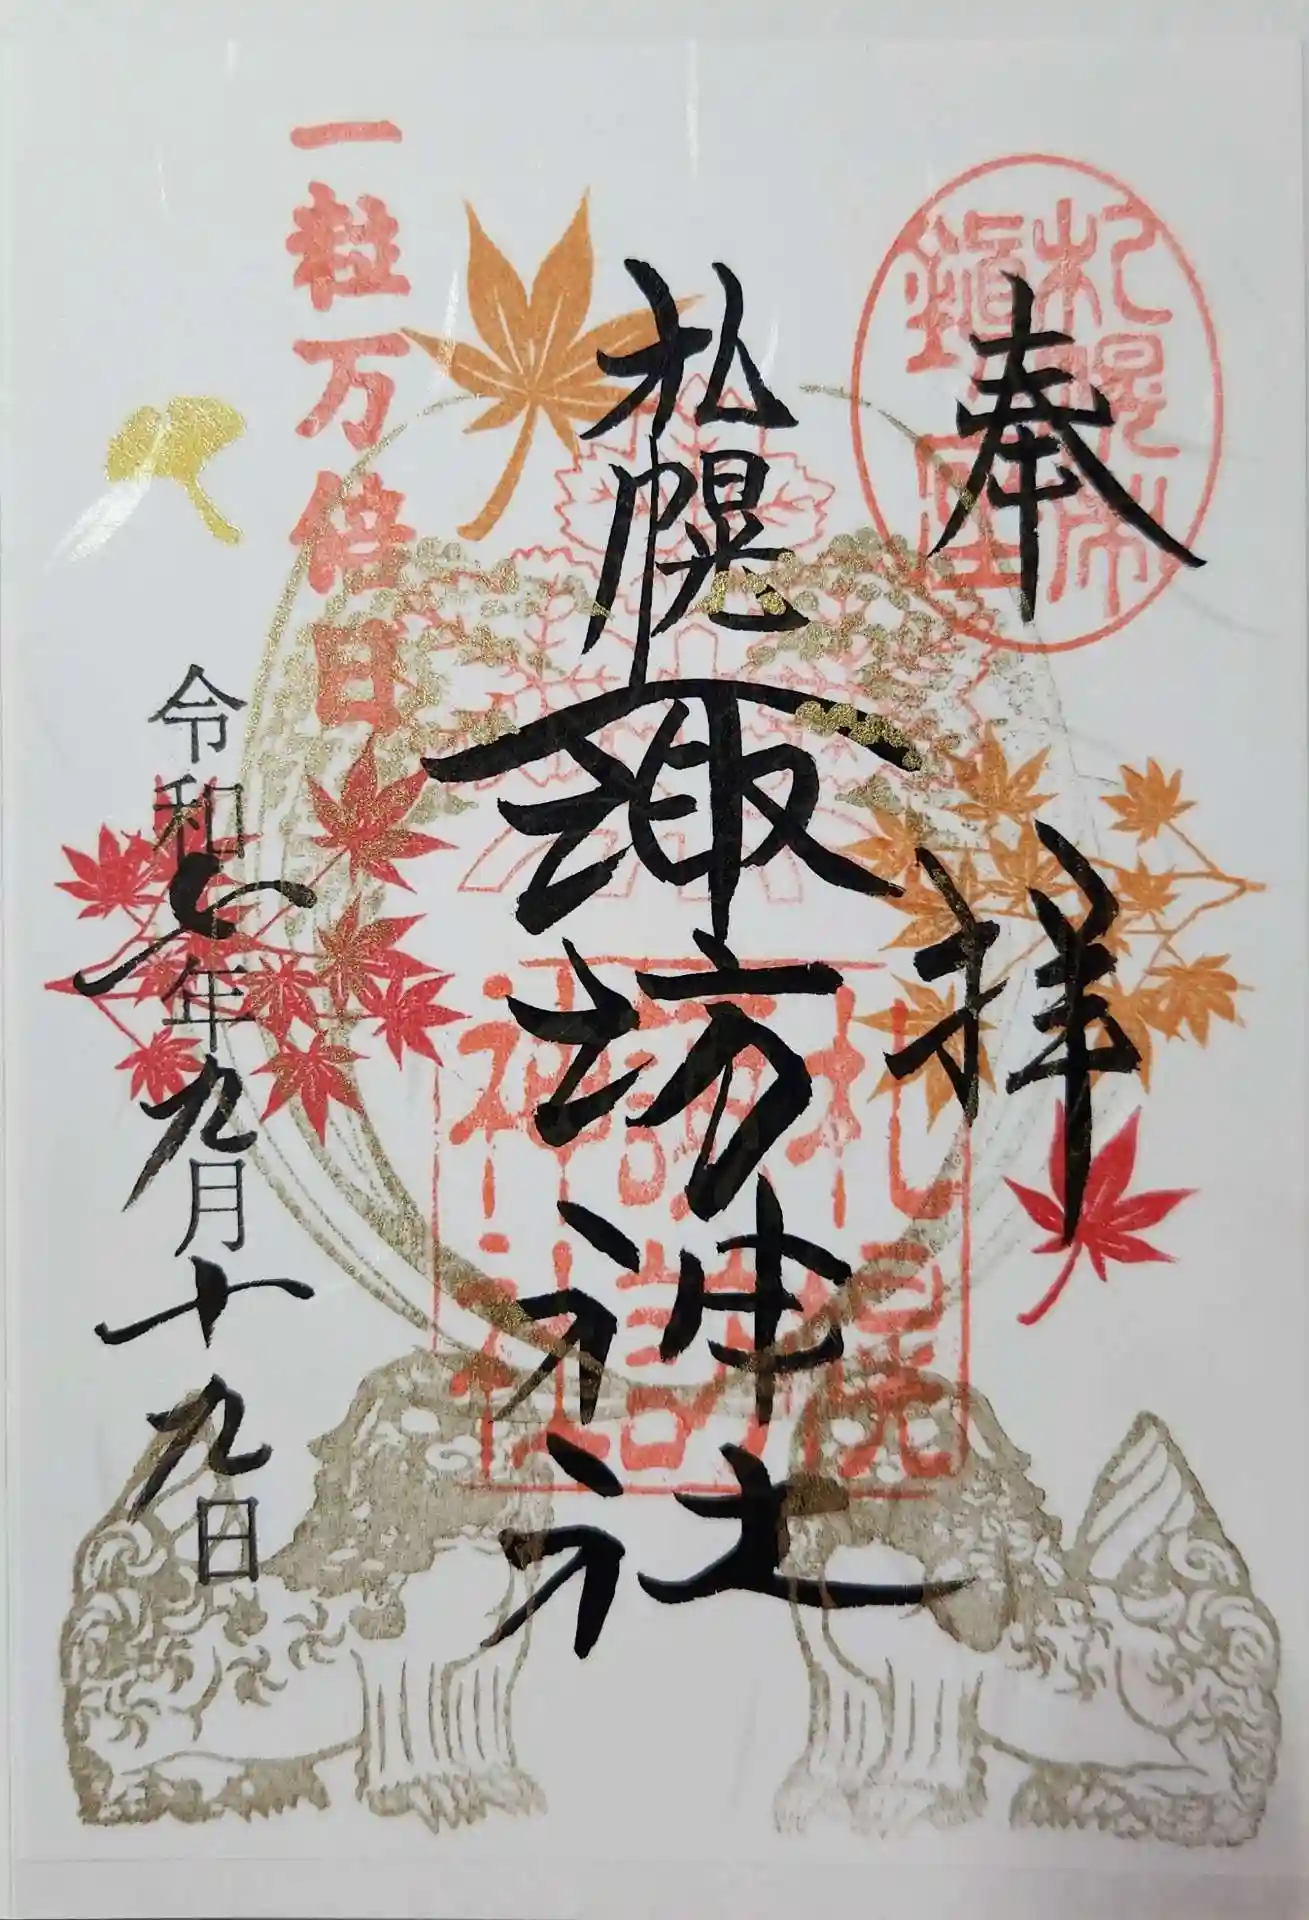 札幌市
鎮座
奉拝
札幌諏訪神社
札幌
諏訪
神社
一粒万倍日
令和七年九月十九日